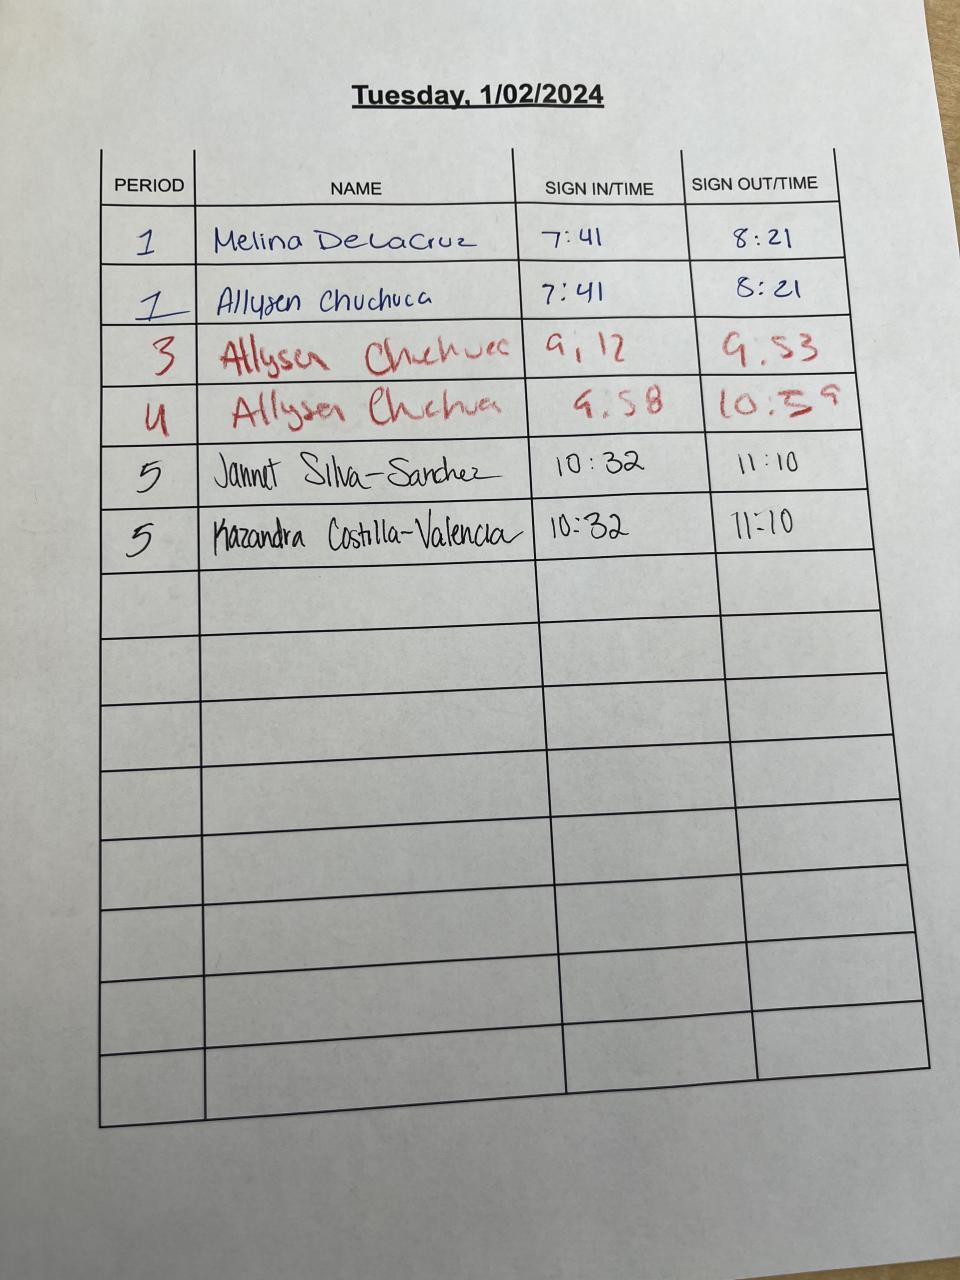 Tuesday, 1/02/2024
PERIOD NAME SIGN IN/TIME SIGN OUT/TIME
1 Melina DeLaCruz 7:41 8:21
1 Allysen Chuchuca 7:41 8:21
3 Allysen Chuchuca 9,12 9.53
4 Allysen Chuchua 9.58 10:59
5 Jannet Silva-Sanchez 10:32 11:10
5 Kazandra Costilla-Valencia 10:32 11:10